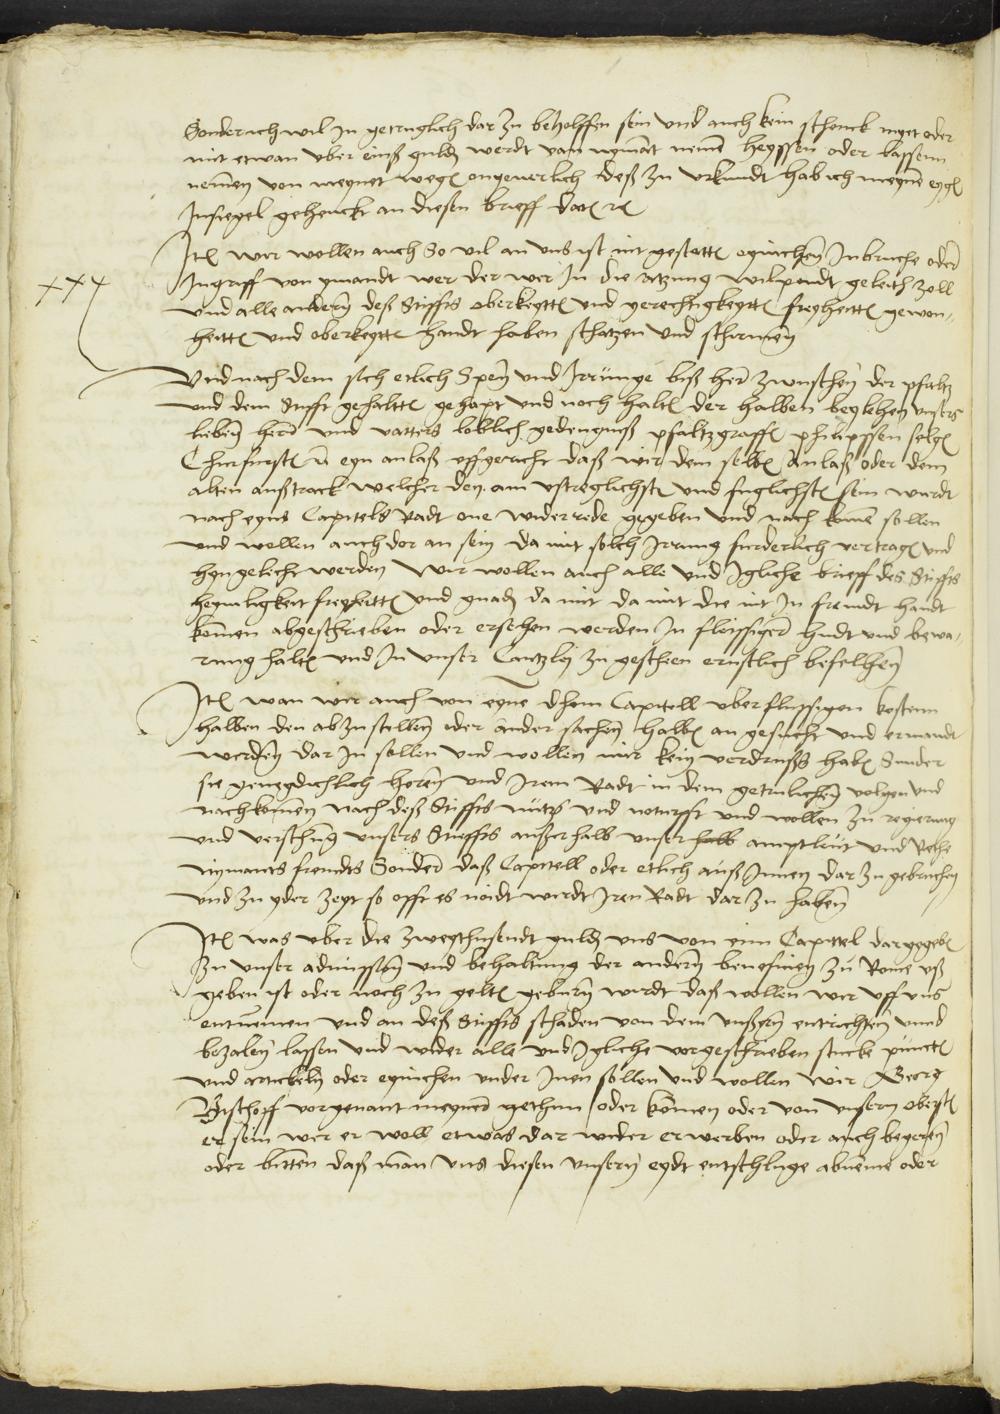 Sonder ich wil in getruglich dar zu beholffen sein und auch kein schenck myet oder
mit etwan uber eins guld werdt von nymant nemen heyssen oder lassenn
nemen von meynet wegen ongeverlich deß zu urkundt hab ich meyne eygen
Insiegel gehenckt an diesen brieff Daten etc
Item wir wollen auch So vil an uns ist nit gestatten eynichen Inbruche oder
Ingriff von ymandt wer der wer In die atzung wilpandt geleith zoll
und alle andern deß Stiffts oberkeytten und gerechtigkeytten freyheitten gewon,
heitten und oberkeytten handthaben schutzen und schirmen
xxx
Und nach dem sich etlich Spenn und Irrunge biß her zwuschen der pfaltz
und dem Stifft gehaltten gehapt und noch halten der halben beylehen unsers
lieben hern und vatters loblich gedengniß pfaltzgraffen philipssen seligen
Churfursten etc eyn anlaß uffgericht daß wir dem selben Anlaß oder dem
alten außtrack welcher den am ustreglichsten und fuglichsten sein wurdt
nach eyns Capitels Radt one widerrede gegeben und nach komen sollen
und wollen auch dor an sein da mit solch Irrung furderlich vertragen und
hyngelecht werden Wir wollen auch alle und Igliche brieff des Stiffts
heymligkeit freyheitten und gnaden da mit da mit die nit In fremdt handt
komen abgeschrieben oder ersehen werden In fleissiger hudt und bewa,
rung halten und In unser Cantzley zu gescheen ernstlich befelhen
Item wan wir auch von eyne dhom Capitell uberflussigen kostenn
halben den abzustellen oder ander sachen halben an gesucht und ermandt
werden dar In sollen und wollen wir kein verdruß haben Sunder
sie genegdichlich horen und Irem Radt in dem getrulichen volgen und
nachkomen nach deß Stiffts nutz und noturfft und wollen zu regierung
und versehung unsers Stieffts ausserhalb unser halb amptleut und Rethe
nymants fremdts Sonder daß Capitell oder etlich auß Innen dar zu gebruchen
und zu yder zeyt so offt es noidt wirdt Iren Radt dar zu haben
Item was uber die zweythusendt guld uns von eim Capittel dargegeben
zu unser admission und behaltung der andern benefitien zu Rome uß
geben ist oder noch zu gelten geburn wirdt daß wollen wir uff uns
entnemen und an deß Stiffts schaden von dem unßern entrichten unnd
bezalen lassen und wider alle und Igliche vorgeschrieben stucke puncten
und artickeln oder eynichen under Inen sollen und wollen Wir Georg
Bischoff vorgenant nymer gethun oder komen oder von unsern obersten
er sein wer er woll etwas dar wider erwerben oder auch begeren
oder bitten daß man uns diesen unsern eydt entschluge abneme oder